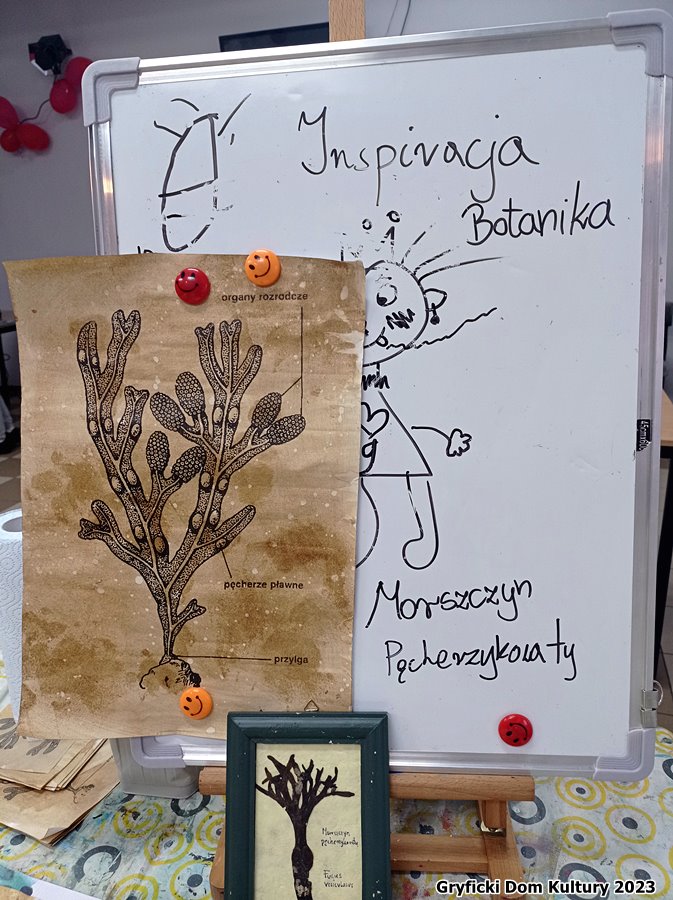 Inspiracja
Botanika
organy rozrodcze
pęcherze pławne
przylga
Morszczyn
Pęcherzykowaty
Morszczyn
Pęcherzykowaty
Fucus
vesiculosus
Gryficki Dom Kultury 2023